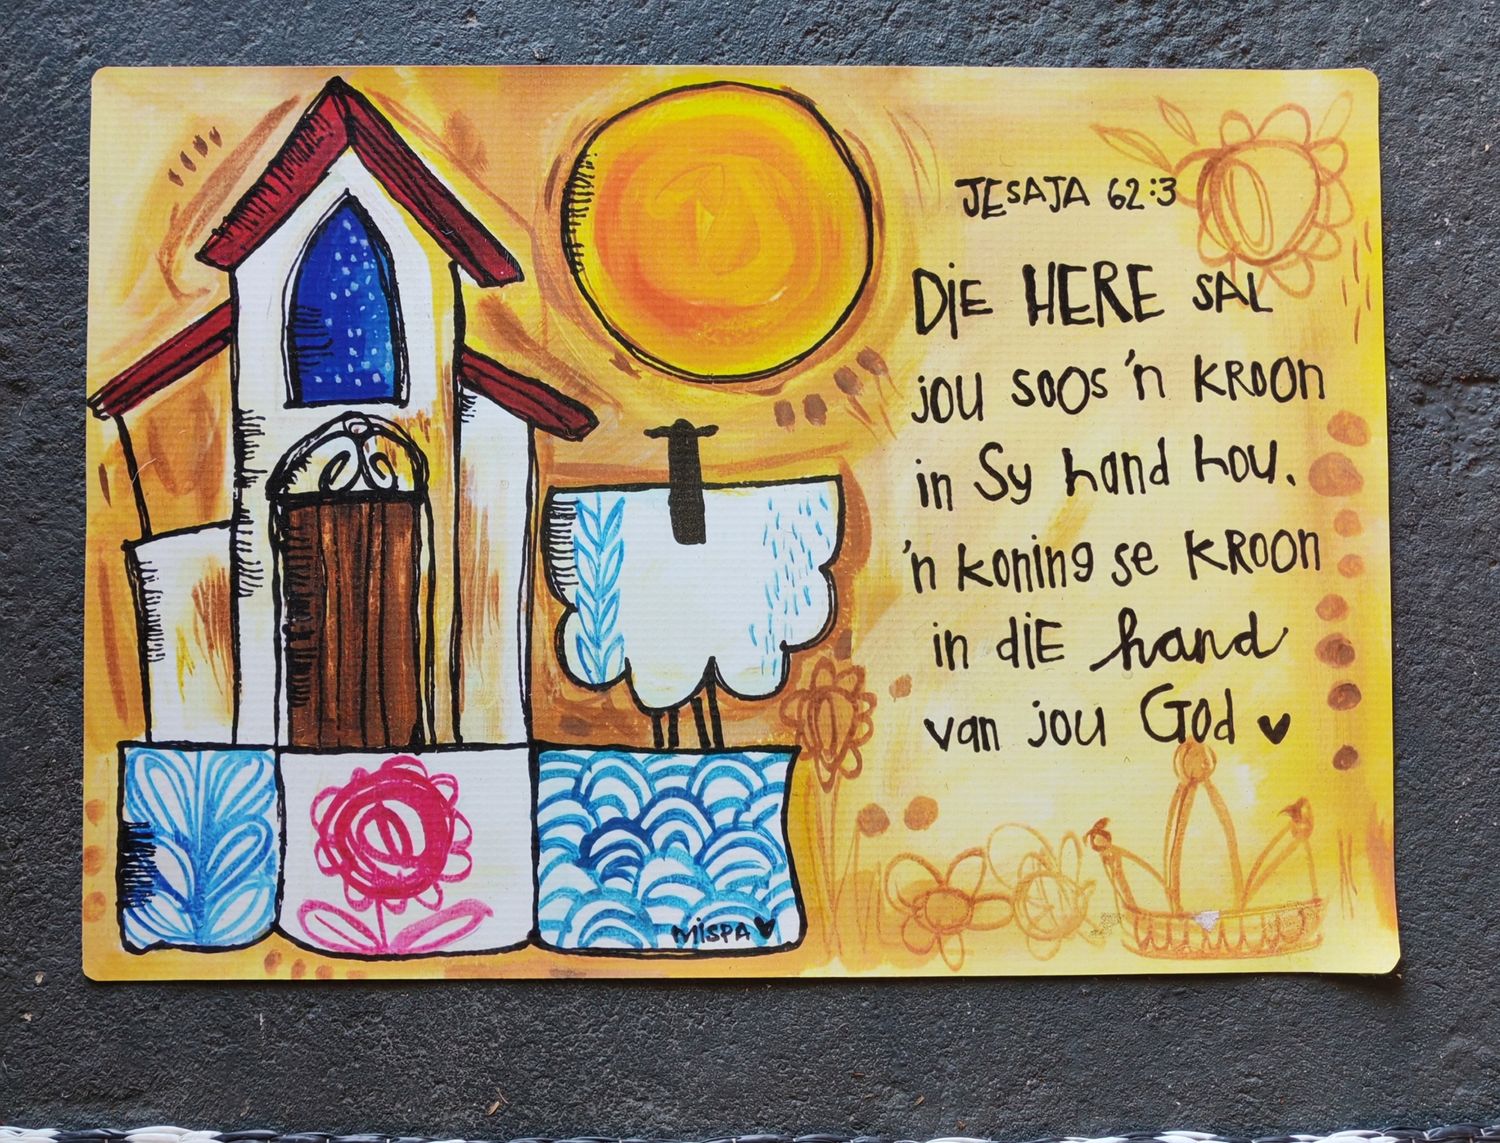 JESAJA 62:3
DiE HERE SAL
jou soos 'n KROOn
in Sy hand hou.
'n koning se KROOn
in diE hand
van jou God ♥
MiSPA ♥